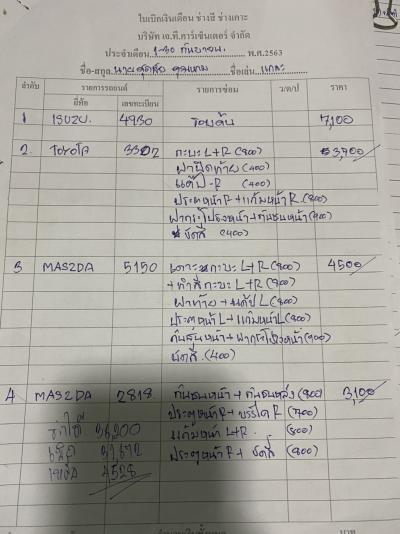 ใบเบิกเงินเดือน ช่างสี ช่างเคาะ
บริษัท เจ.ที.คาร์เซ็นเตอร์ จำกัด
ประจำเดือน 1-30 กันยายน พ.ศ.2563
ชื่อ-สกุล นาย ชื่อเล่น แกละ
ลำดับ รายการรถยนต์ รายการซ่อม ว/ด/ป ราคา
ยี่ห้อ เลขทะเบียน
1 ISUZU. 4930 รอบคัน 7,100
2. TOYOTA 3302 กะบะ L+R (900) 3,700
ฝาปิดท้าย (400)
แค๊ป-R (400)
ประตูหน้า R+แก้มหน้า R (800)
ฝากระโปรงหน้า+กันชนหน้า (900)
ขัดสี (400)
3 MASZDA 5150 เคาะกะบะ L+R (900) 4500
+ทำสีกะบะ L+R (900)
ฝาท้าย+แค๊ป L (800)
ประตูหน้า L+แก้มหน้า L (800)
กันชนหน้า+ฝากระโปรงหน้า (900)
ขัดสี (400)
4 MASZDA 2818 กันชนหน้า+กันชนหลัง (800) 3,100
ประตูหน้า R+บรรได R (700)
แก้มหน้า L+R. (800)
ประตูหน้า R+ขัดสี (800)
4528
บาท